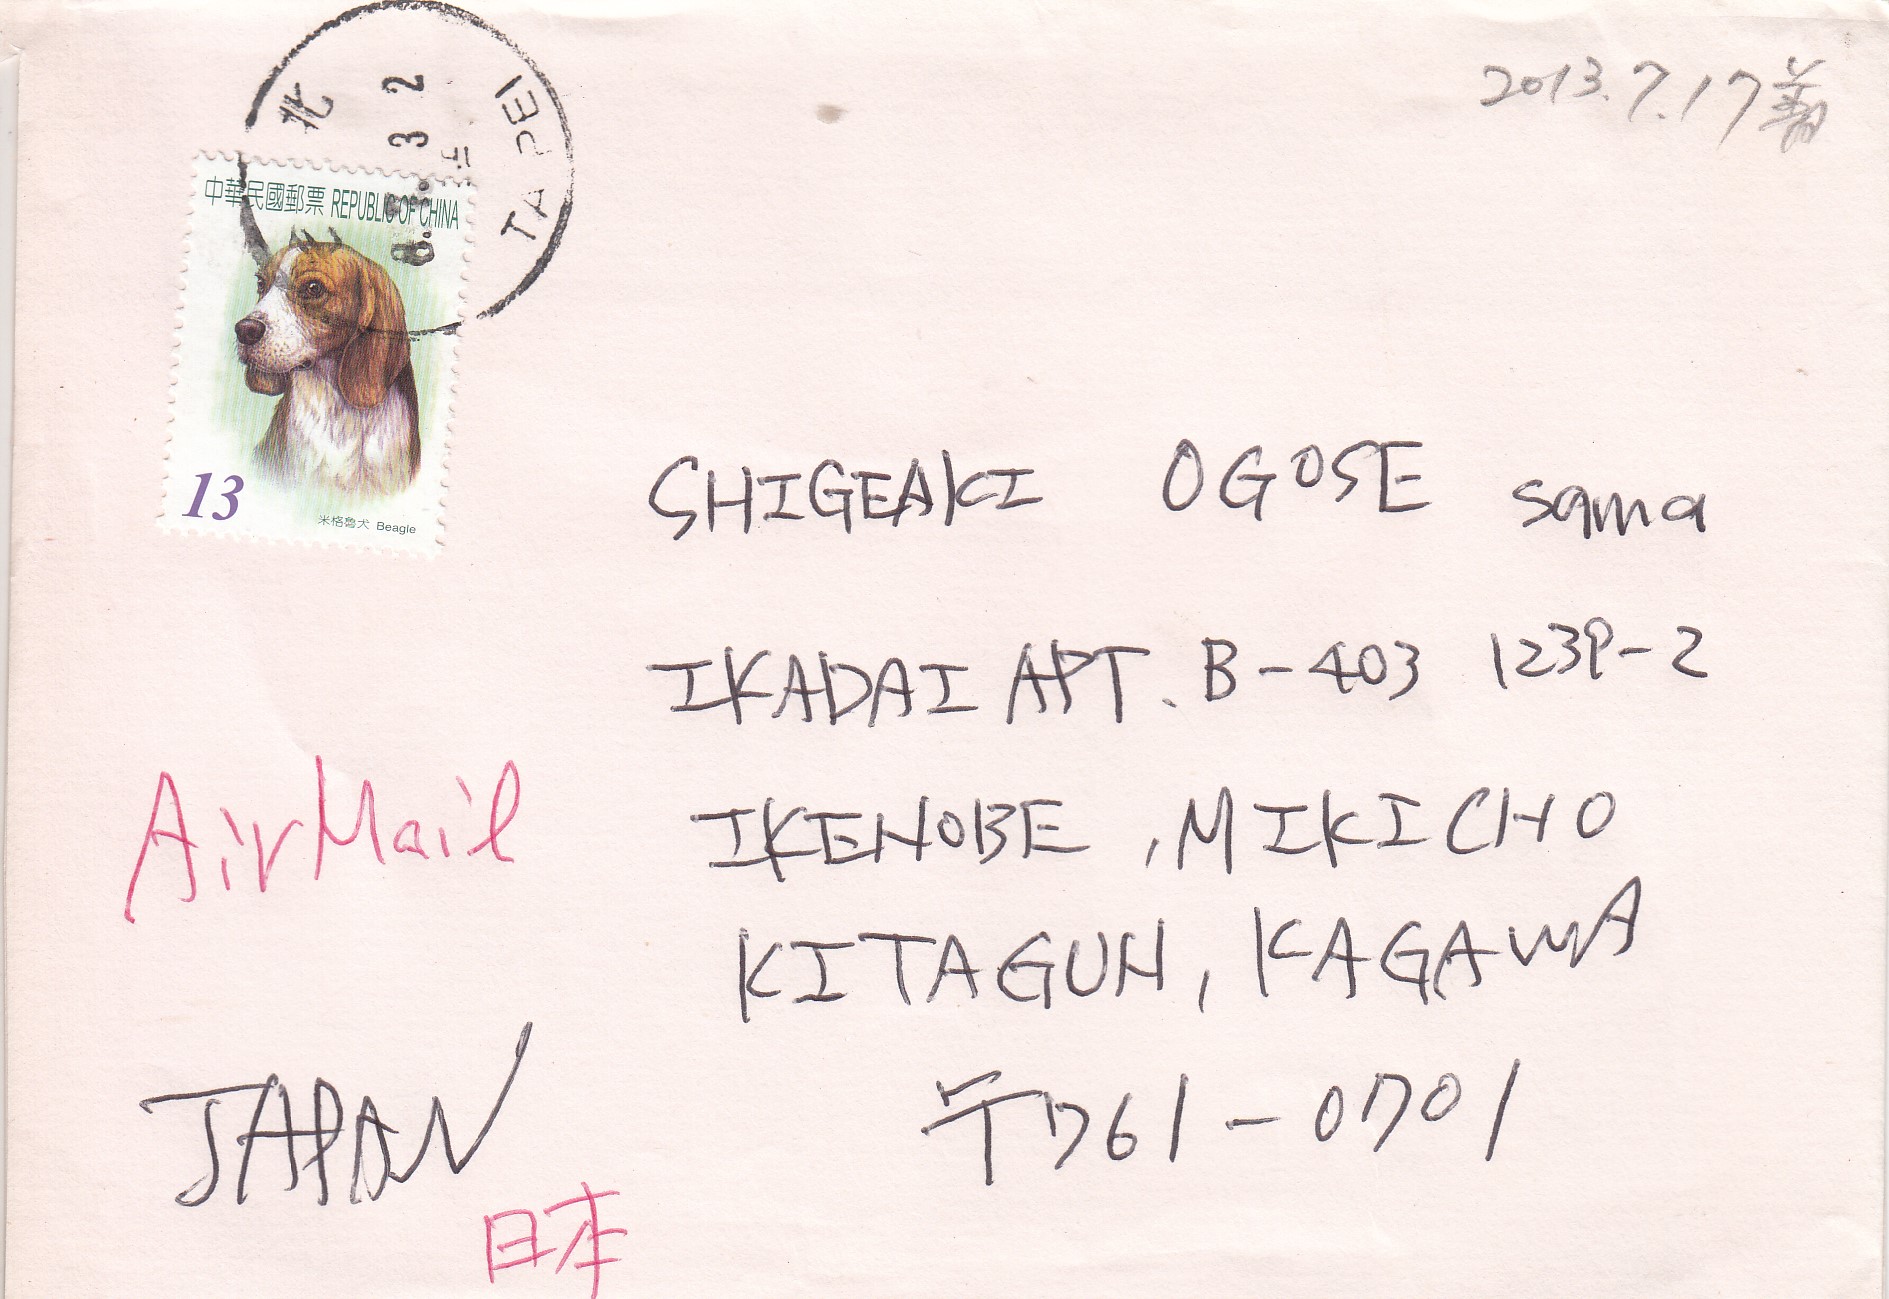 2013.7.17着
北
TAIPEI
3 2
中華民國郵票 REPUBLIC OF CHINA
13
米格魯犬 Beagle
SHIGEAKI OGOSE sama
IKADAI APT. B-403 1239-2
IKENOBE, MIKICHO
KITAGUN, KAGAWA
〒761-0701
AirMail
JAPAN
日本